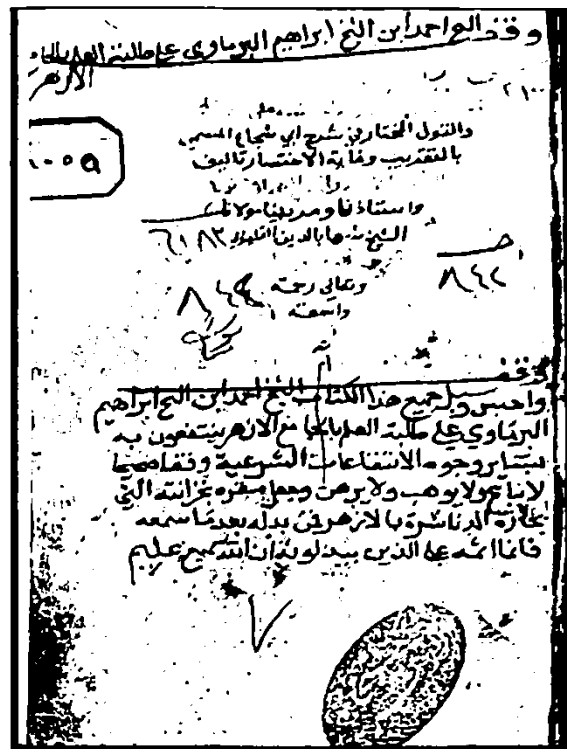 وقف الشيخ احمد ابن الشيخ ابراهيم البرماوي على طلبة العلم بالجامع
الازهر
والقول المختار في شرح ابي شجاع المسمى
بالتقريب وغاية الاختصار تاليف
واستاذنا ومربينا مولانا
الشيخ شهاب الدين
٨٤٢
وتعالى رحمة
واسعة
٨٤٤
وقف
واحبس وسبل جميع هذا الكتاب الشيخ احمد ابن الشيخ ابراهيم
البرماوي على طلبة العلم بالجامع الازهر ينتفعون به
بسائر وجوه الانتفاعات الشرعية وقفا صحيحا
لا يباع ولا يوهب ولا يرهن وجعل مقره بخزانته التي
بحارة بالازهر فمن بدله بعد ما سمعه
فانما اثمه على الذين يبدلونه ان الله سميع عليم